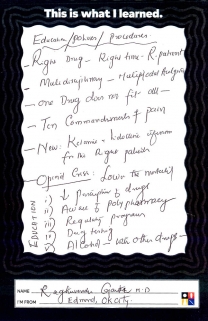 This is what I learned.
Education / Policies / Procedures
- Right Drug - Right time - R. patient
- Multidisciplinary -
- one Drug does not fit all -
- Ten Commandments of pain
- New: Ketamine + Lidocaine infusion
for the Right patients
- Opioid Crisis: Lower the
EDUCATION
i) ↓ Prescription of drugs
ii) Avoid Polypharmacy
iii) Regulatory programs
iv) Drug testing
v) Alcohol - with other drugs -
NAME M.D
I'M FROM Edmond, OK City